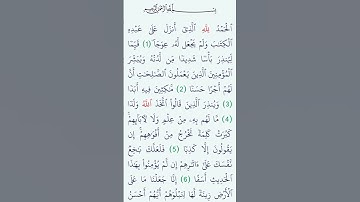 بِسْمِ ٱللَّهِ ٱلرَّحْمَٰنِ ٱلرَّحِيمِ
ٱلْحَمْدُ لِلَّهِ ٱلَّذِىٓ أَنزَلَ عَلَىٰ عَبْدِهِ
ٱلْكِتَٰبَ وَلَمْ يَجْعَل لَّهُۥ عِوَجَا (1) قَيِّمًا
لِّيُنذِرَ بَأْسًا شَدِيدًا مِّن لَّدُنْهُ وَيُبَشِّرَ
ٱلْمُؤْمِنِينَ ٱلَّذِينَ يَعْمَلُونَ ٱلصَّٰلِحَٰتِ أَنَّ
لَهُمْ أَجْرًا حَسَنًا (2) مَّٰكِثِينَ فِيهِ أَبَدًا
(3) وَيُنذِرَ ٱلَّذِينَ قَالُوا۟ ٱتَّخَذَ ٱللَّهُ وَلَدًا
(4) مَّا لَهُم بِهِۦ مِنْ عِلْمٍ وَلَا لِءَابَآئِهِمْ
كَبُرَتْ كَلِمَةً تَخْرُجُ مِنْ أَفْوَٰهِهِمْ إِن
يَقُولُونَ إِلَّا كَذِبًا (5) فَلَعَلَّكَ بَٰخِعٌ
نَّفْسَكَ عَلَىٰٓ ءَاثَٰرِهِمْ إِن لَّمْ يُؤْمِنُوا۟ بِهَٰذَا
ٱلْحَدِيثِ أَسَفًا (6) إِنَّا جَعَلْنَا مَا عَلَى
ٱلْأَرْضِ زِينَةً لَّهَا لِنَبْلُوَهُمْ أَيُّهُمْ أَحْسَنُ